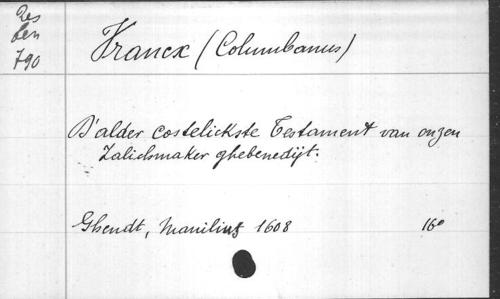 Res
ben
790
Francx (Columbanus)
D'alder costelickste Testament van onzen
Zalichmaker ghebenedijt.
Ghendt, Manilius 1608 16°